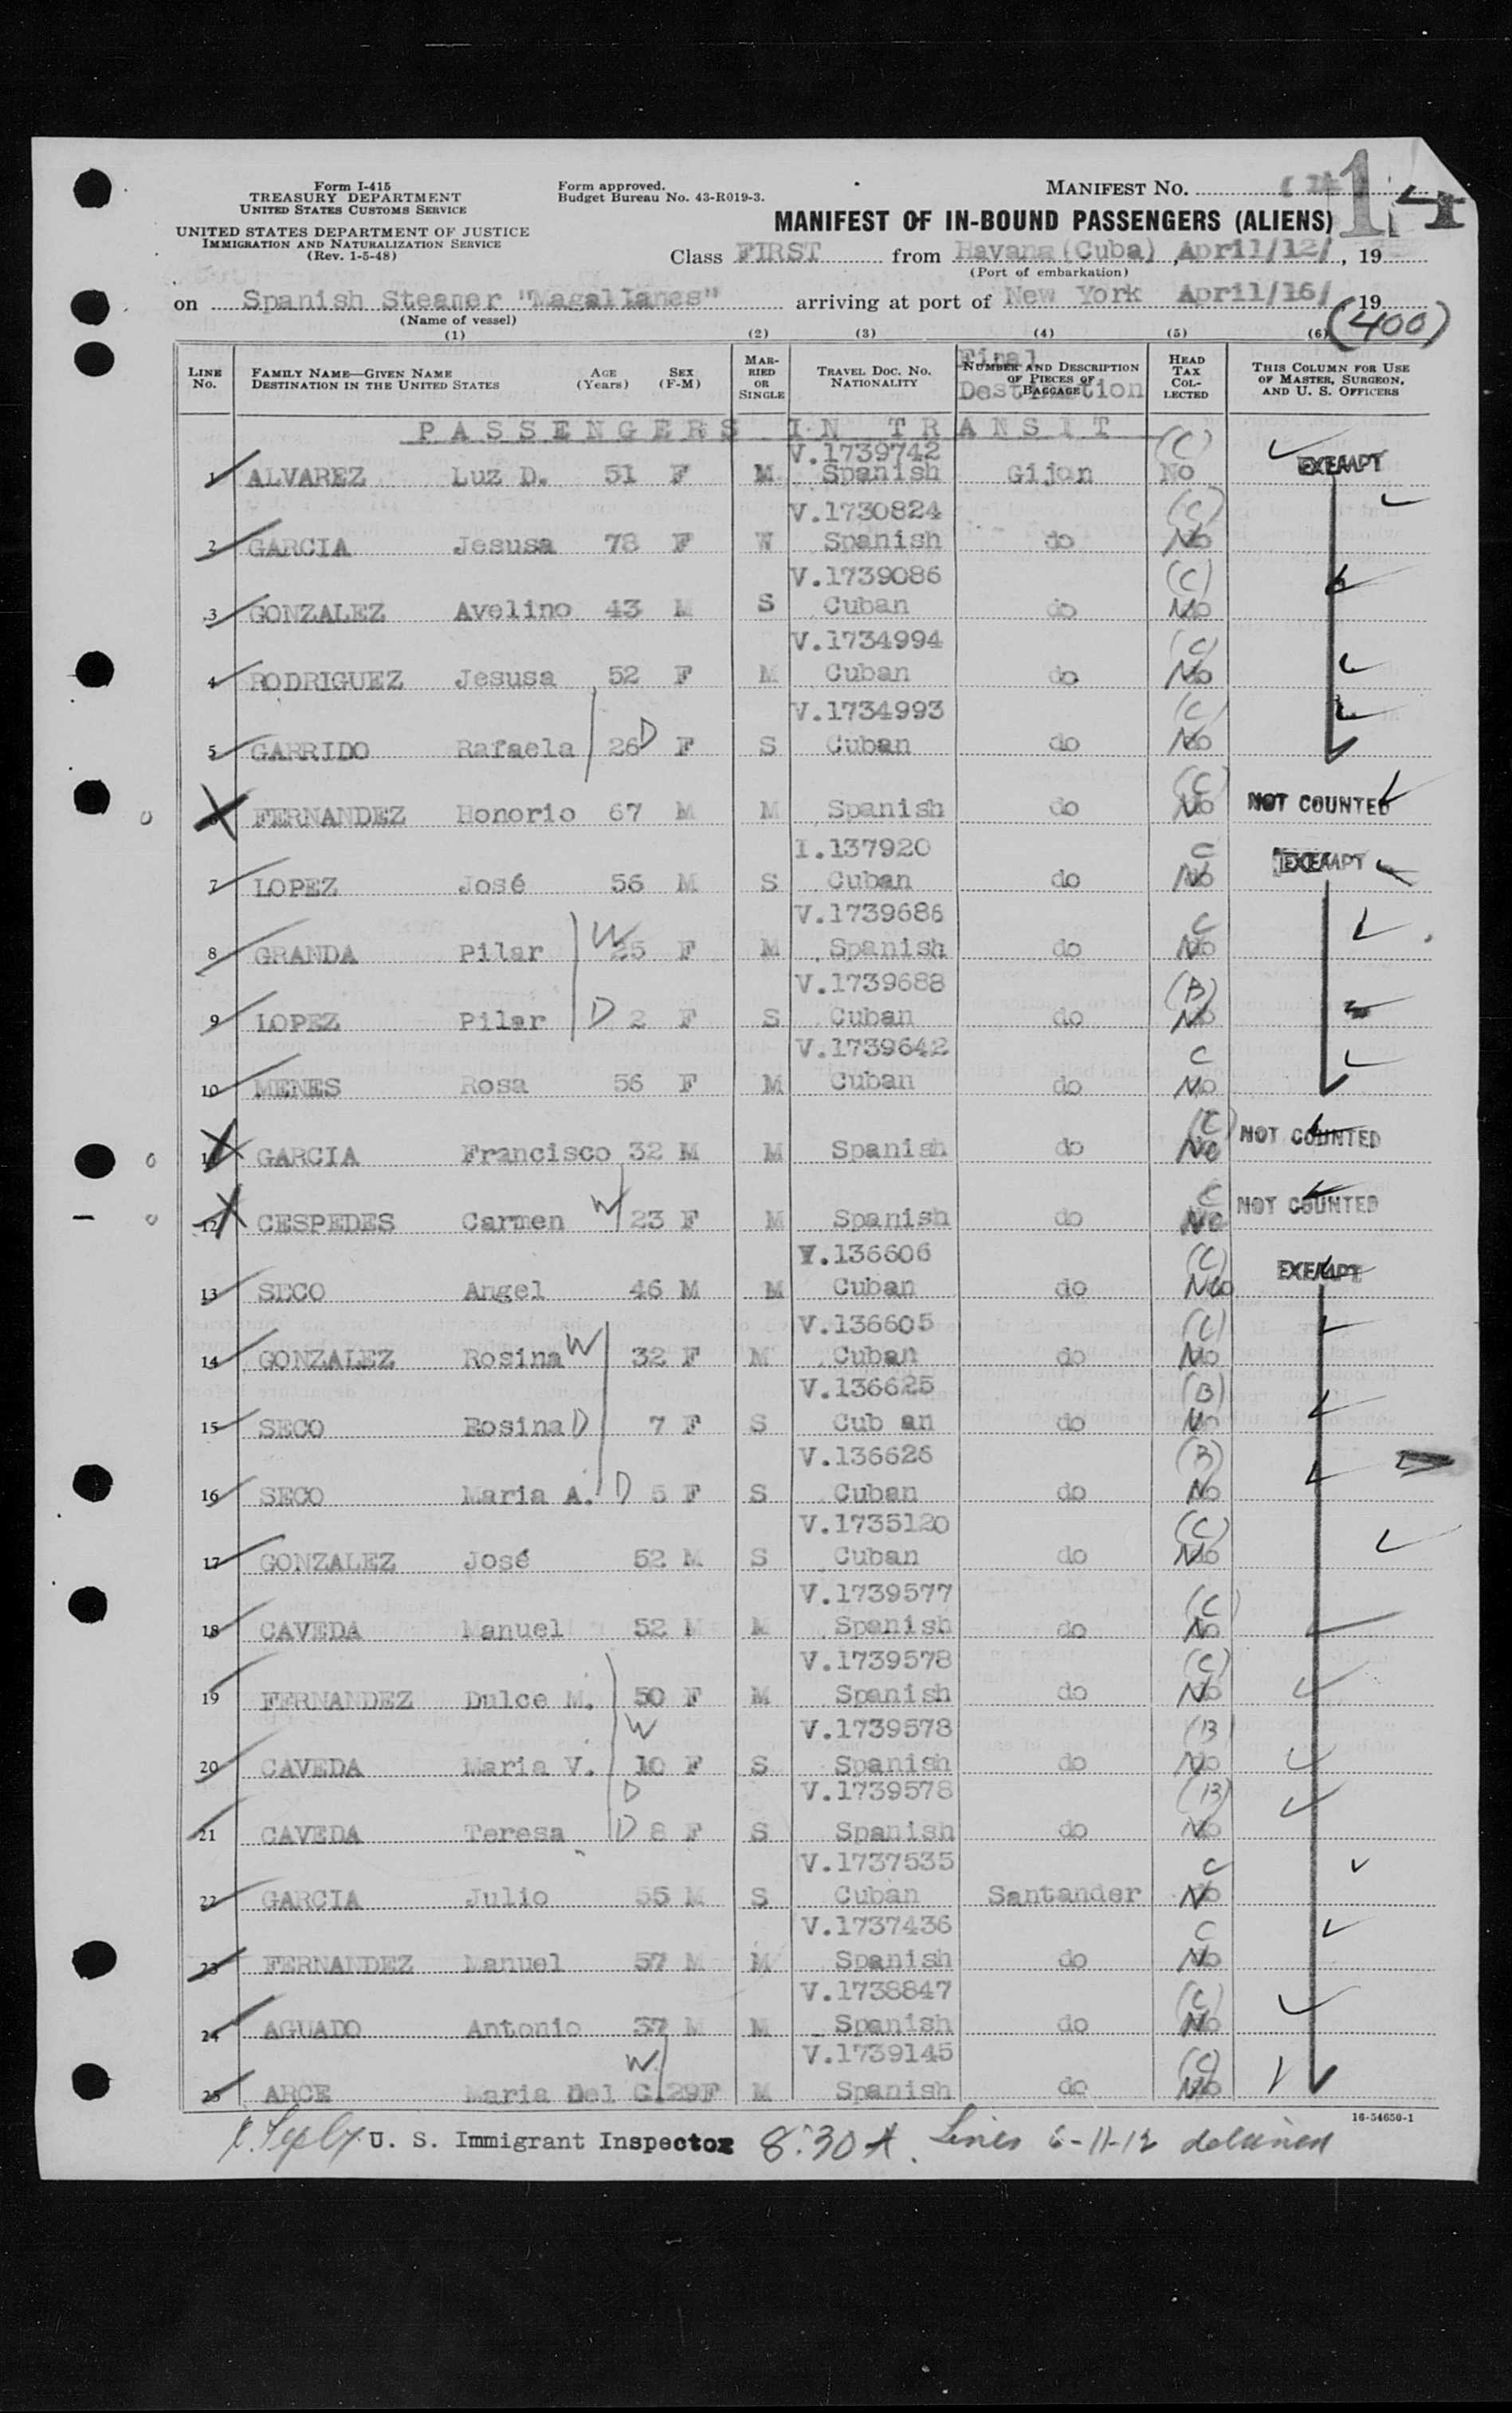 Form I-415
TREASURY DEPARTMENT
UNITED STATES CUSTOMS SERVICE
UNITED STATES DEPARTMENT OF JUSTICE
IMMIGRATION AND NATURALIZATION SERVICE
(Rev. 1-5-48)
Form approved.
Budget Bureau No. 43-R019-3.
MANIFEST NO.
14
MANIFEST OF IN-BOUND PASSENGERS (ALIENS)
Class FIRST from Havana (Cuba) , April/12/ , 19
(Port of embarkation)
on Spanish Steamer "Magallanes" arriving at port of New York April/16/ 19
(Name of vessel)
(400)
(1) (2) (3) (4) (5) (6)
LINE No. FAMILY NAME—GIVEN NAME DESTINATION IN THE UNITED STATES AGE (Years) SEX (F-M) MARRIED OR SINGLE TRAVEL DOC. NO. NATIONALITY NUMBER AND DESCRIPTION OF PIECES OF BAGGAGE Final Destination HEAD TAX COLLECTED THIS COLUMN FOR USE OF MASTER, SURGEON, AND U. S. OFFICERS
PASSENGERS IN TRANSIT
V.1739742 (C)
1 ALVAREZ Luz D. 51 F M Spanish Gijon No EXEMPT
V.1730824 (C)
2 GARCIA Jesusa 78 F W Spanish do No
V.1739086 (C)
3 GONZALEZ Avelino 43 M S Cuban do No
V.1734994 (C)
4 RODRIGUEZ Jesusa 52 F M Cuban do No
V.1734993 (C)
5 GARRIDO Rafaela 26 D F S Cuban do No
(C)
6 FERNANDEZ Honorio 67 M M Spanish do No NOT COUNTED
I.137920 C
7 LOPEZ José 56 M S Cuban do No EXEMPT
V.1739686 C
8 GRANDA Pilar W 25 F M Spanish do No
V.1739688 (B)
9 LOPEZ Pilar D 2 F S Cuban do No
V.1739642 C
10 MENES Rosa 56 F M Cuban do No
(C)
11 GARCIA Francisco 32 M M Spanish do No NOT COUNTED
C
12 CESPEDES Carmen W 23 F M Spanish do No NOT COUNTED
V.136606 (C)
13 SECO Angel 46 M M Cuban do No EXEMPT
V.136605 (C)
14 GONZALEZ Rosina W 32 F M Cuban do No
V.136625 (B)
15 SECO Rosina D 7 F S Cub an do No
V.136626 (B)
16 SECO Maria A. D 5 F S Cuban do No
V.1735120 (C)
17 GONZALEZ José 52 M S Cuban do No
V.1739577 (C)
18 CAVEDA Manuel 52 M M Spanish do No
V.1739578 (C)
19 FERNANDEZ Dulce M. 50 F M Spanish do No
W V.1739578 (B)
20 CAVEDA Maria V. 10 F S Spanish do No
D V.1739578 (B)
21 CAVEDA Teresa D 8 F S Spanish do No
V.1737535 C
22 GARCIA Julio 55 M S Cuban Santander No
V.1737436 C
23 FERNANDEZ Manuel 57 M M Spanish do No
V.1738847 (C)
24 AGUADO Antonio 37 M M Spanish do No
W V.1739145 (C)
25 ARCE Maria Del C. 29 F M Spanish do No
16-54650-1
U. S. Immigrant Inspector 8:30 A. Lines 6-11-12 detained